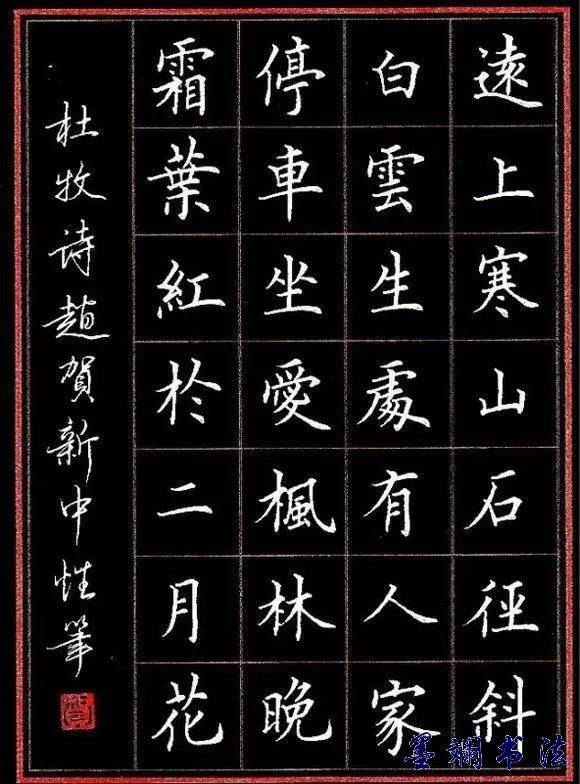 遠上寒山石徑斜
白雲生處有人家
停車坐愛楓林晚
霜葉紅於二月花
杜牧诗趙賀新中性筆
賀
墨斓书法